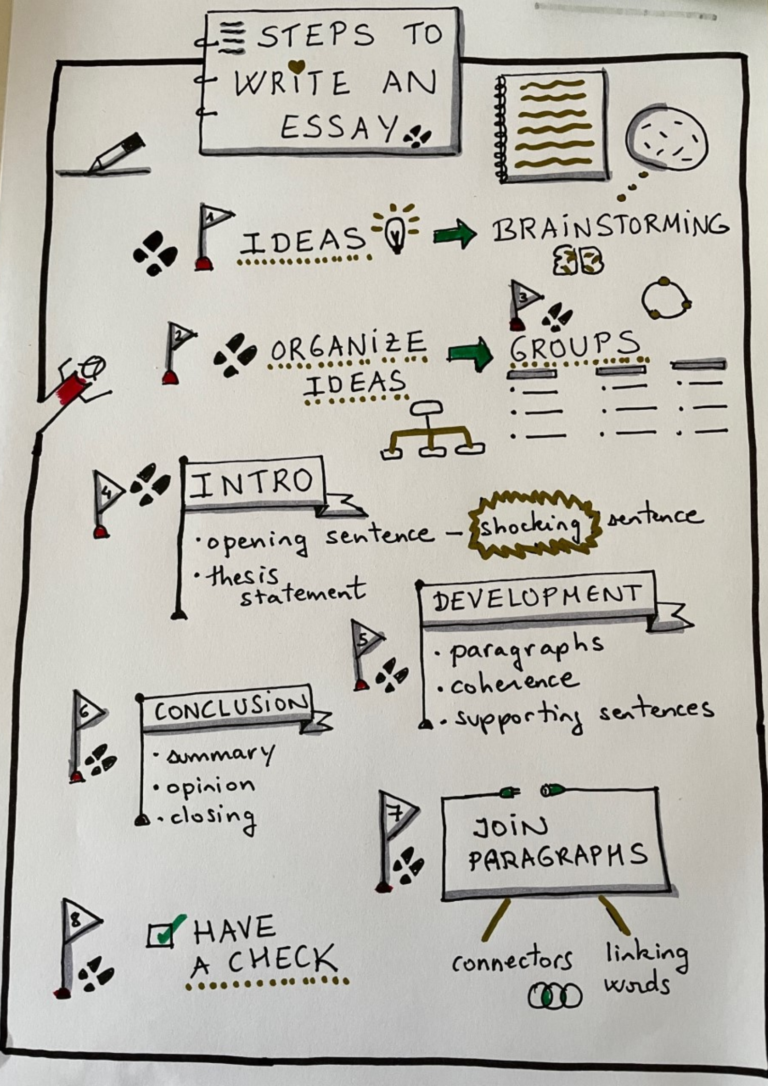 STEPS TO
WRITE AN
ESSAY
1
IDEAS
BRAINSTORMING
2
ORGANIZE
IDEAS
3
GROUPS
4
INTRO
• opening sentence – shocking sentence
• thesis
statement
5
DEVELOPMENT
• paragraphs
• coherence
• supporting sentences
6
CONCLUSION
• summary
• opinion
• closing
7
JOIN
PARAGRAPHS
connectors
linking
words
8
HAVE
A CHECK